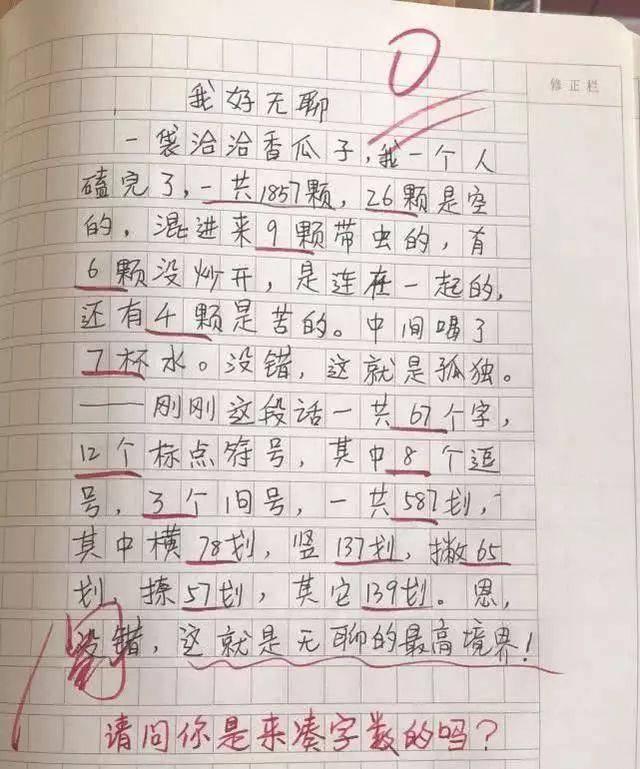 0
修正栏
我好无聊
一袋洽洽香瓜子,我一个人
磕完了,一共1857颗,26颗是空
的,混进来9颗带虫的,有
6颗没炒开,是连在一起的,
还有4颗是苦的。中间喝了
7杯水。没错,这就是孤独。
——刚刚这段话一共67个字,
12个标点符号,其中8个逗
号,3个旧号,一共587划,
其中横78划,竖137划,撇65
划,捺57划,其它139划。恩,
没错,这就是无聊的最高境界!
阅
请问你是来凑字数的吗?